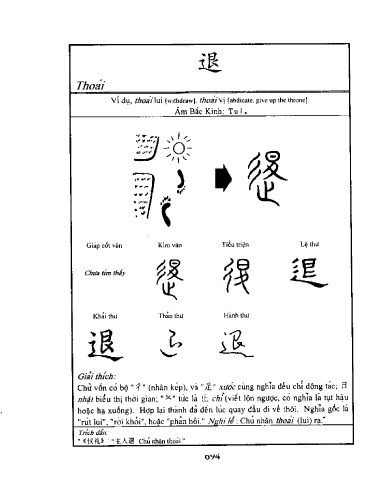 退
Thoái
Ví dụ, thoái lui [withdraw], thoái vị [abdicate, give up the throne].
Âm Bắc Kinh: Tuì.
Giáp cốt văn Kim văn Tiểu triện Lệ thư
Chưa tìm thấy
Khải thư Thảo thư Hành thư
退 退
Giải thích:
Chữ vốn có bộ "彳" (nhân kép), và "辵" xước cùng nghĩa đều chỉ động tác; 日
nhật biểu thị thời gian; "夂" tức là 止 chỉ (viết lộn ngược, có nghĩa là tụt hậu
hoặc hạ xuống). Hợp lại thành đã đến lúc quay đầu đi về thôi. Nghĩa gốc là
"rút lui", "rời khỏi", hoặc "phản hồi." Nghi lễ: Chủ nhân thoái (lui) ra."
Trích dẫn:
"《仪礼》: "主人退 Chủ nhân thoái."
094